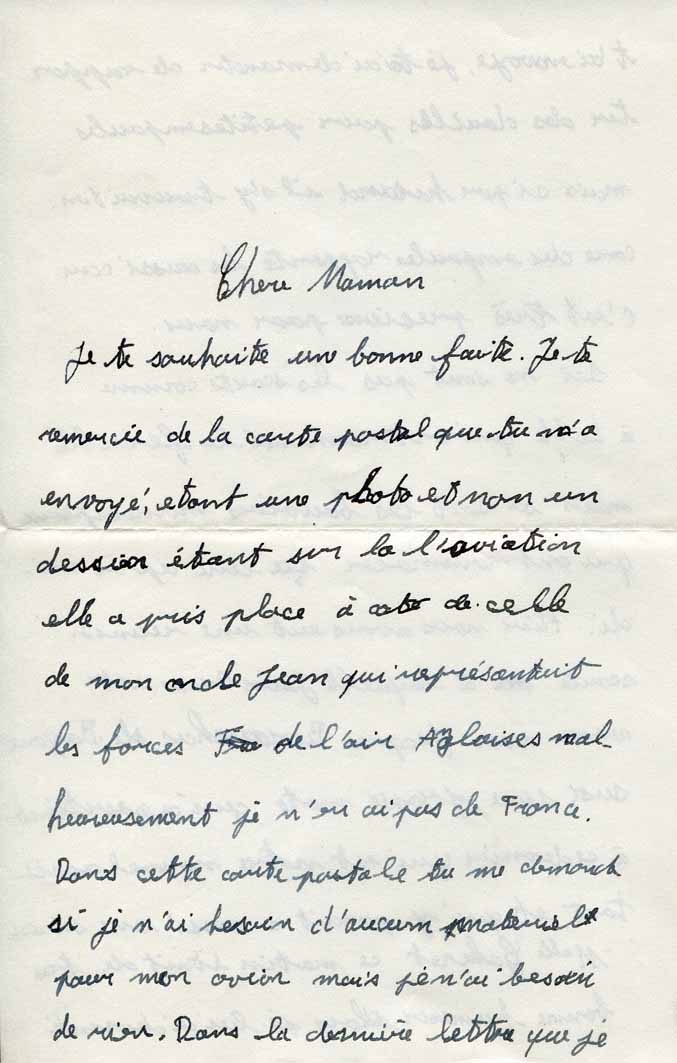 Chere Maman
Je te souhaite une bonne faite. Je te
remercie de la carte postal que tu m'a
envoyé, etant une photo et non un
dession étant sur la l'aviation
elle a pris place à coté de celle
de mon oncle Jean qui représentait
les forces de l'air Anglaises mal-
heureusement je n'en ai pas de France.
Dans cette carte postale tu me demande
si je n'ai besoin d'aucum materiel
pour mon avion mais je n'ai besoin
de rien. Dans la dernière lettre que je